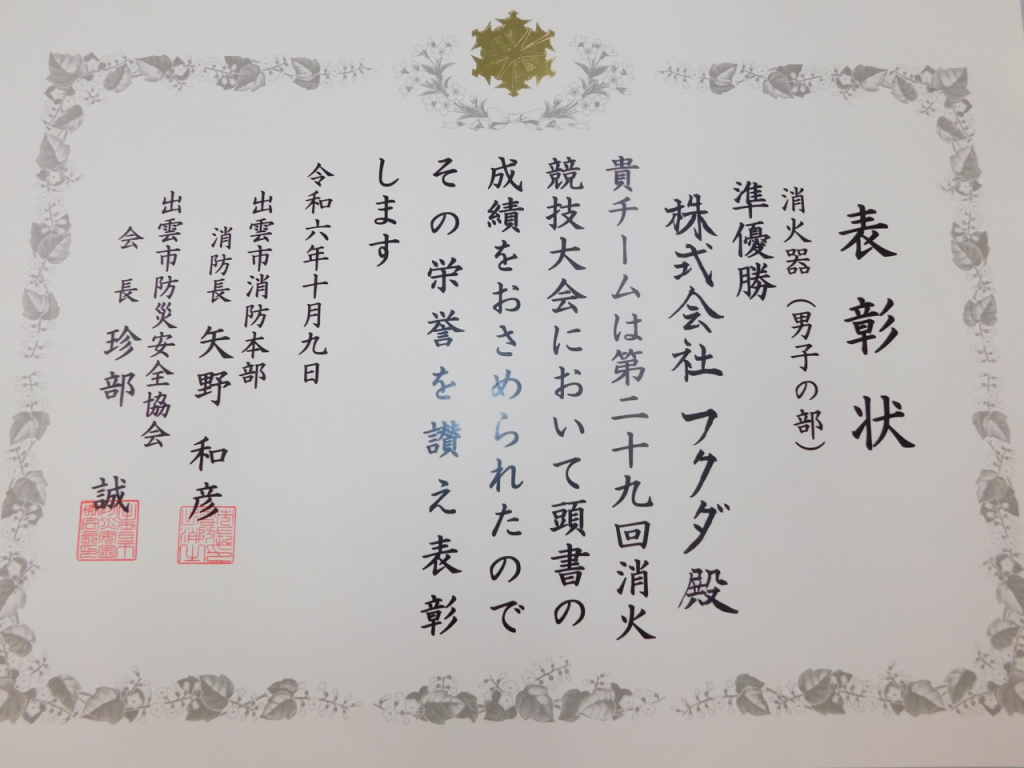 表彰状
消火器（男子の部）
準優勝
株式会社フクダ殿
貴チームは第二十九回消火
競技大会において頭書の
成績をおさめられたので
その栄誉を讃え表彰
します
令和六年十月九日
出雲市消防本部
消防長 矢野和彦
出雲市防災安全協会
会長 珍部誠